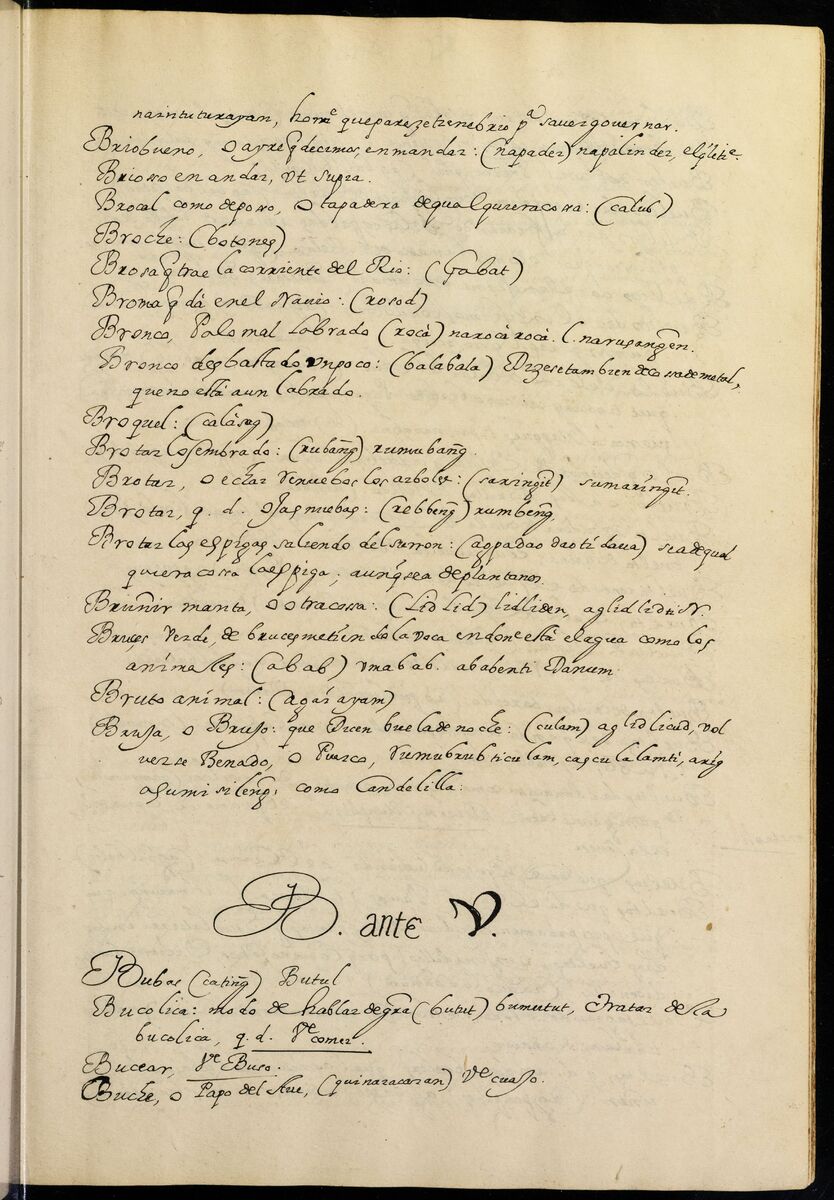 narintuturayan, home queparezetienebrio pa. saver governar.
Briobueno, o ayre q decimos, en mandar: (napader) napalinder,
Brioso en andar, vt supra.
Brocal como deposo, o tapadera dequalquieracosa: (calub)
Broche: (botones)
Brosa q trae la corriente del Rio: (Gabat)
Broma q dá enel Navio: (rosod)
Bronco, Palo mal Labrado (rocà) narocàrocà. l. narusangen.
Bronco desbastado vnpoco: (balabala) Dizese tambien decossademetal,
que no está aun labrado.
Broquel: (calásag)
Brotar lo sembrado: (rubang̃) rumubang̃.
Brotar, o echar renuebos los arboles: (saringit) sumaringit.
Brotar, q. d. ojas nuebas: (rebbeng̃) rumbeng̃.
Brotar las espigas saliendo del surron: (agpadao daoti daua) sea dequal
quiera cossa la espiga; aunq̃ sea de plantanos.
Bruñir manta, o otracossa: (Lid lid) lidliden, aglidlid
Bruçes Verde, de bruces metiendo la voca en donde está el agua como los
animales: (abab) vmabab. ababenti Danum
Bruto animal: (agaiayam)
Bruja, o Brujo: que Dicen buela de noche: (culam) aglidlicud, vol
verse Benado, o Puerco, rumubrubticulam, casculalamti, arig
agumisileng̃, como Candelilla:
B. ante V.
Bubas (cating̃) Butul
Bucolica: modo de hablar de gra (butut) bumutut, tratar dela
bucolica, q. d. Ve comer.
Bucear, Ve Buso.
Buche, o Papo del Ave, (quinaracaran) Ve cuajo.